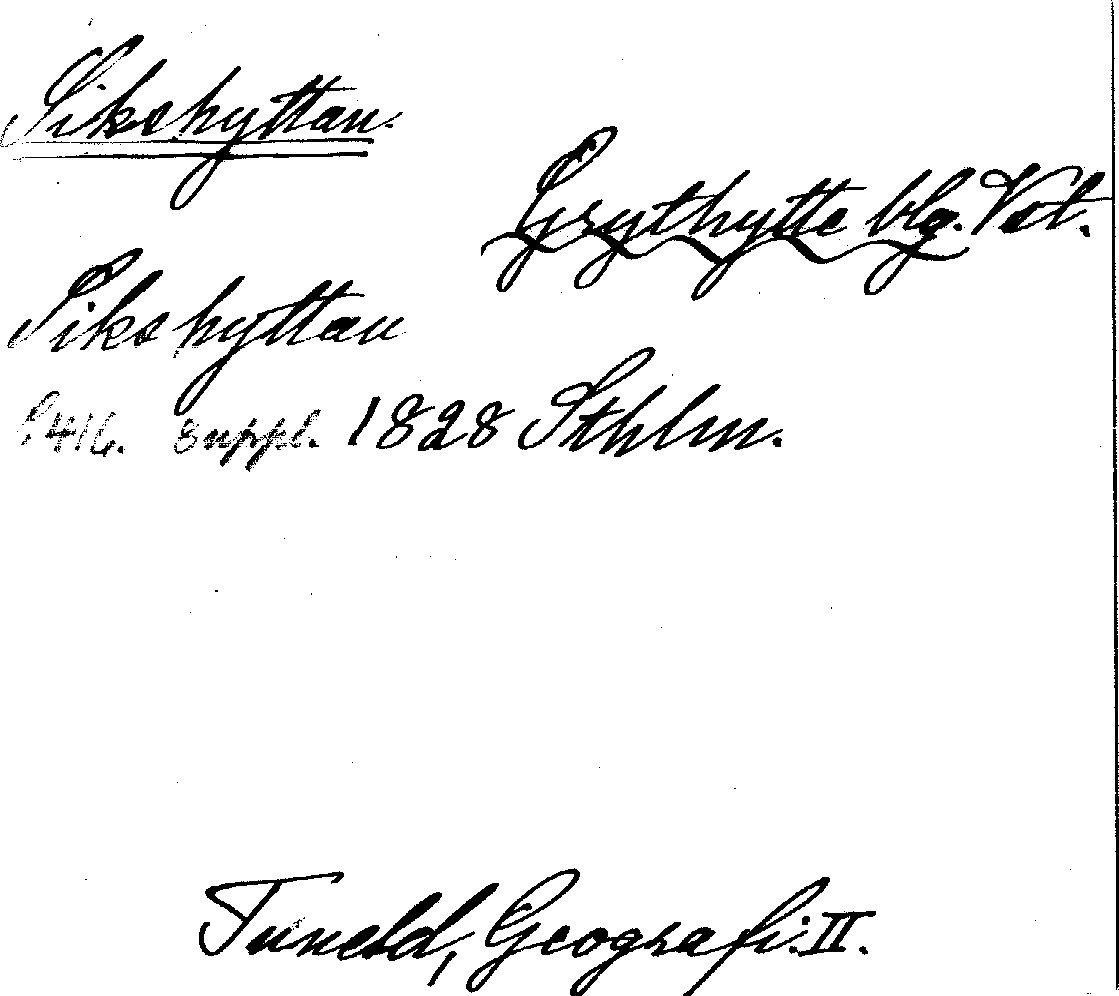 Sikshyttan.
Grythytte blg. Vstl.
Sikshyttan
S. 416. Suppl. 1828 Sthlm.
Tuneld, Geografi. II.